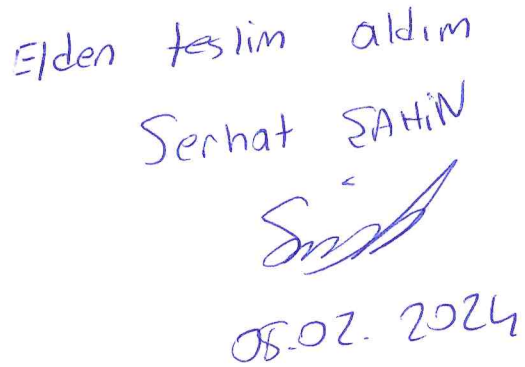 Elden teslim aldım
Serhat ŞAHİN
08.02.2024